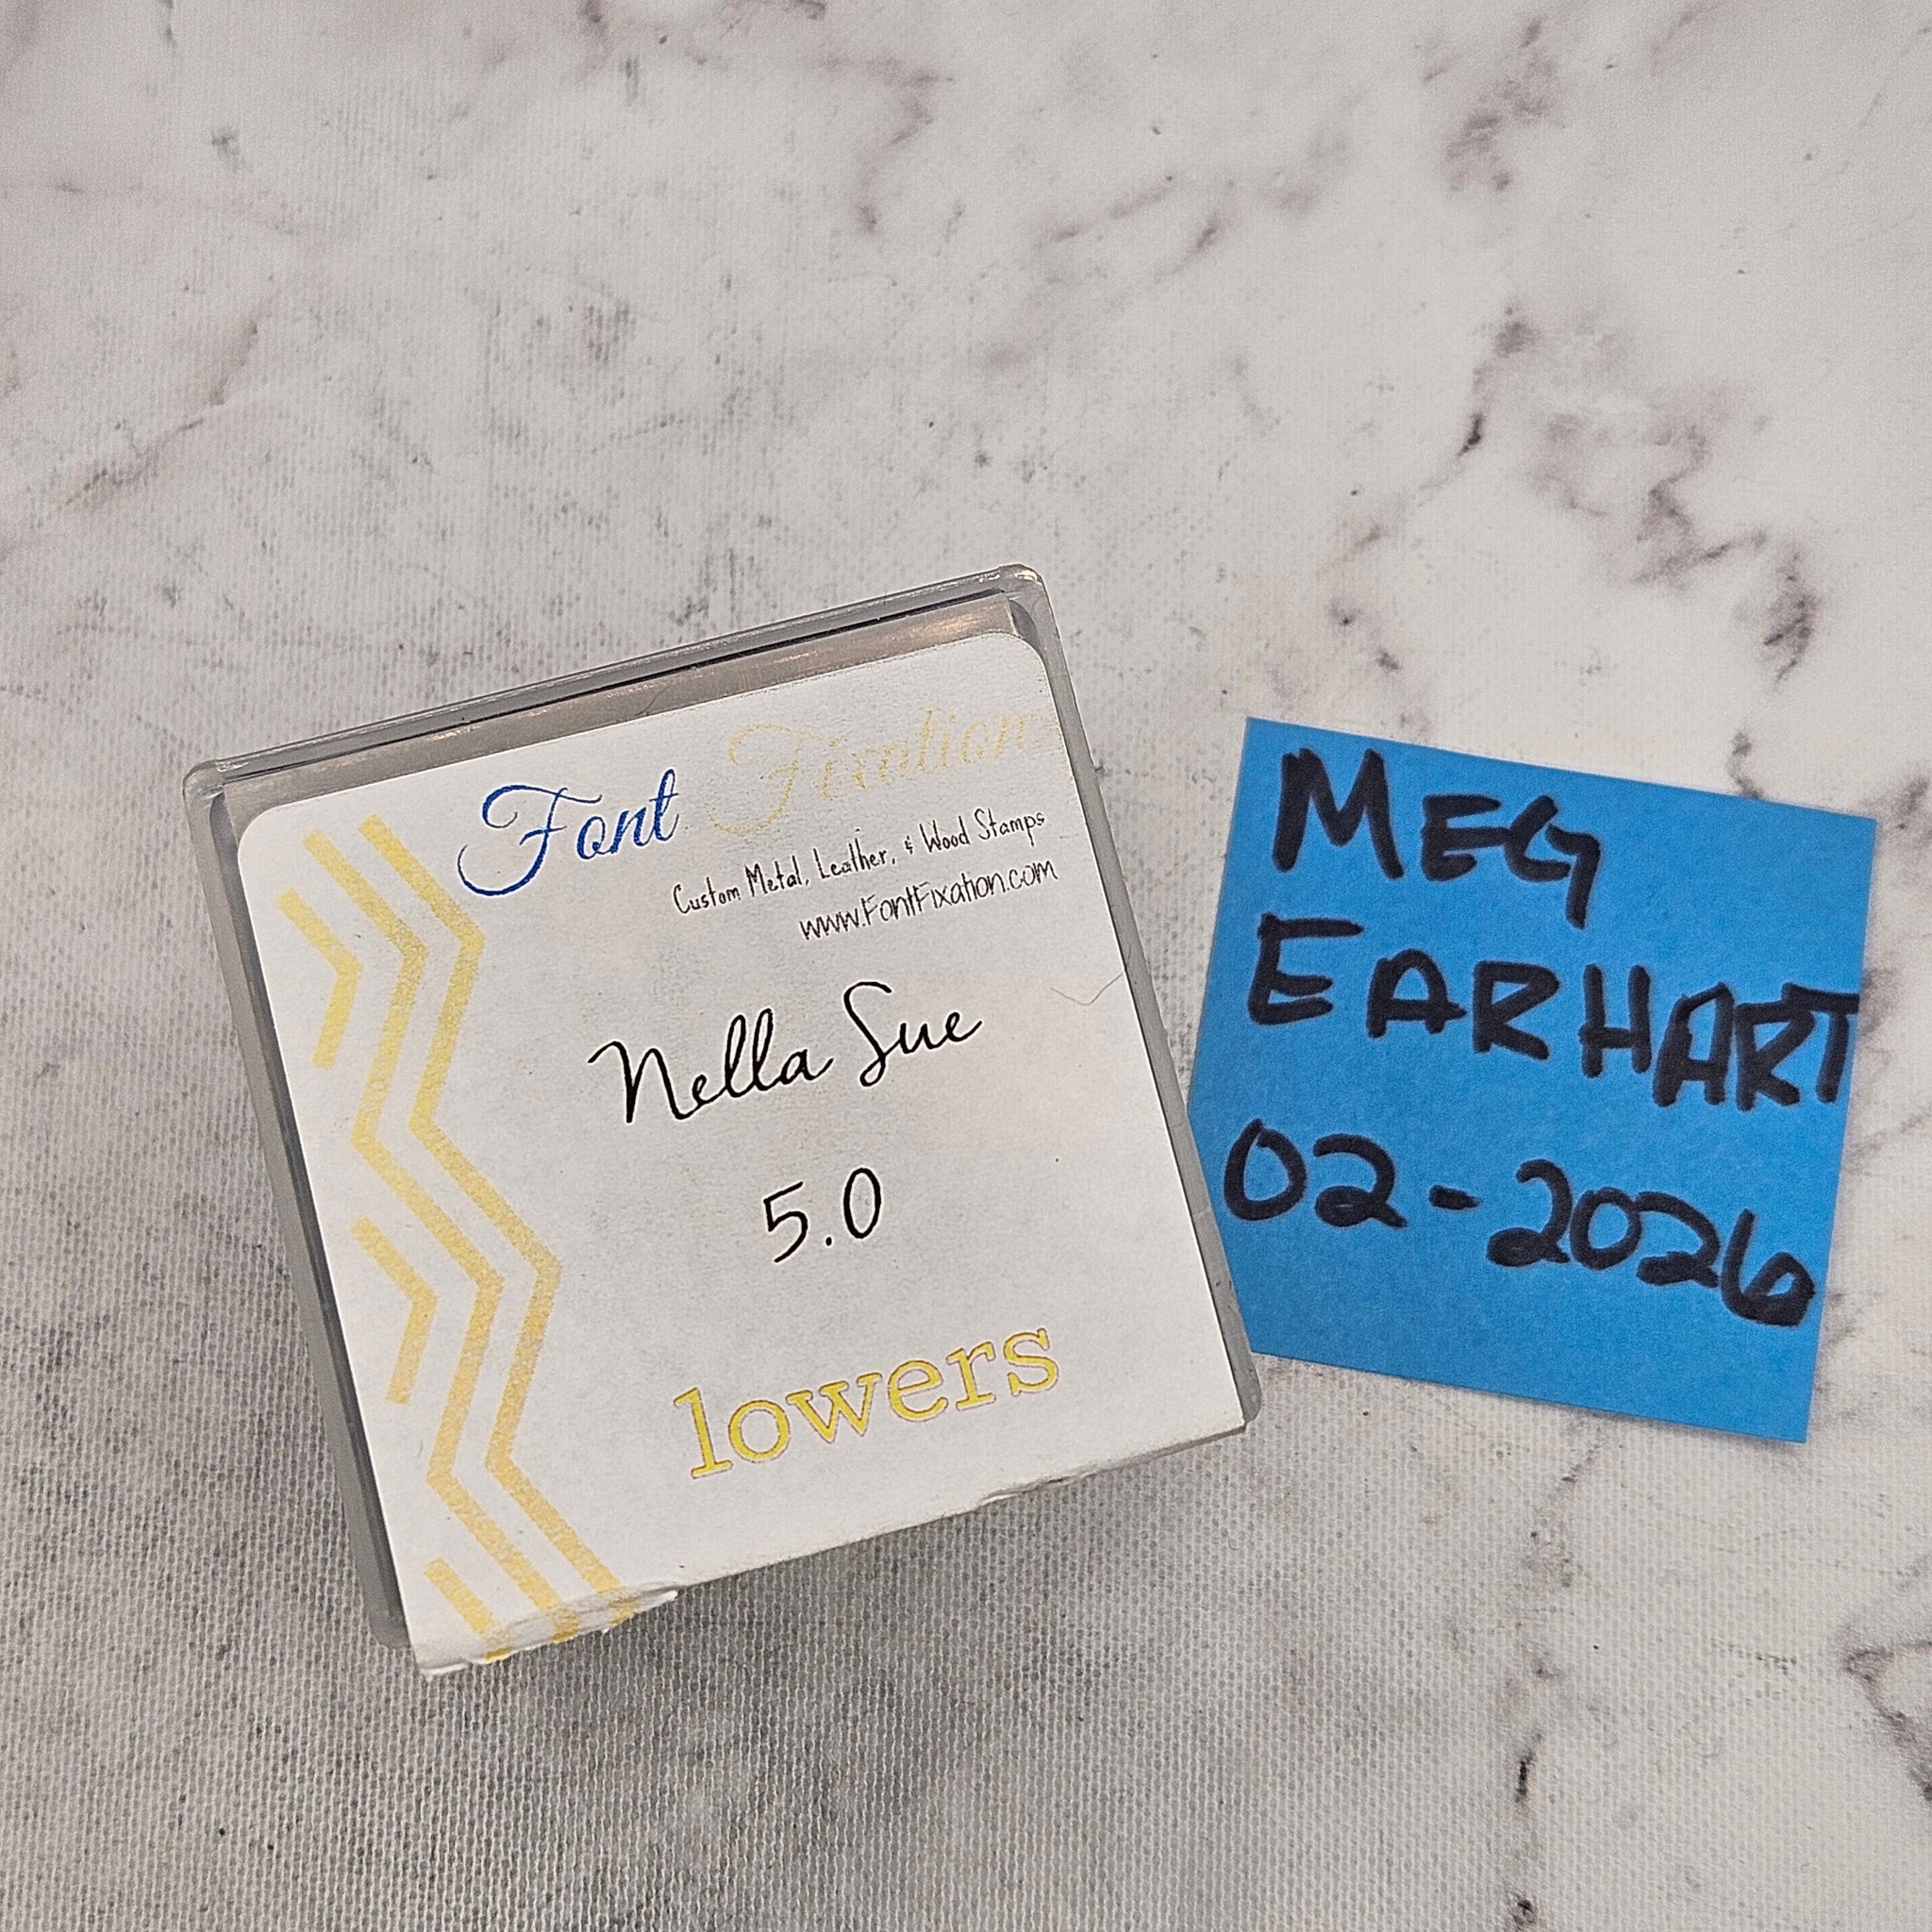 Font Fixation
Custom Metal, Leather, & Wood Stamps
www.FontFixation.com
Nella Sue
5.0
lowers
MEG
EARHART
02-2026